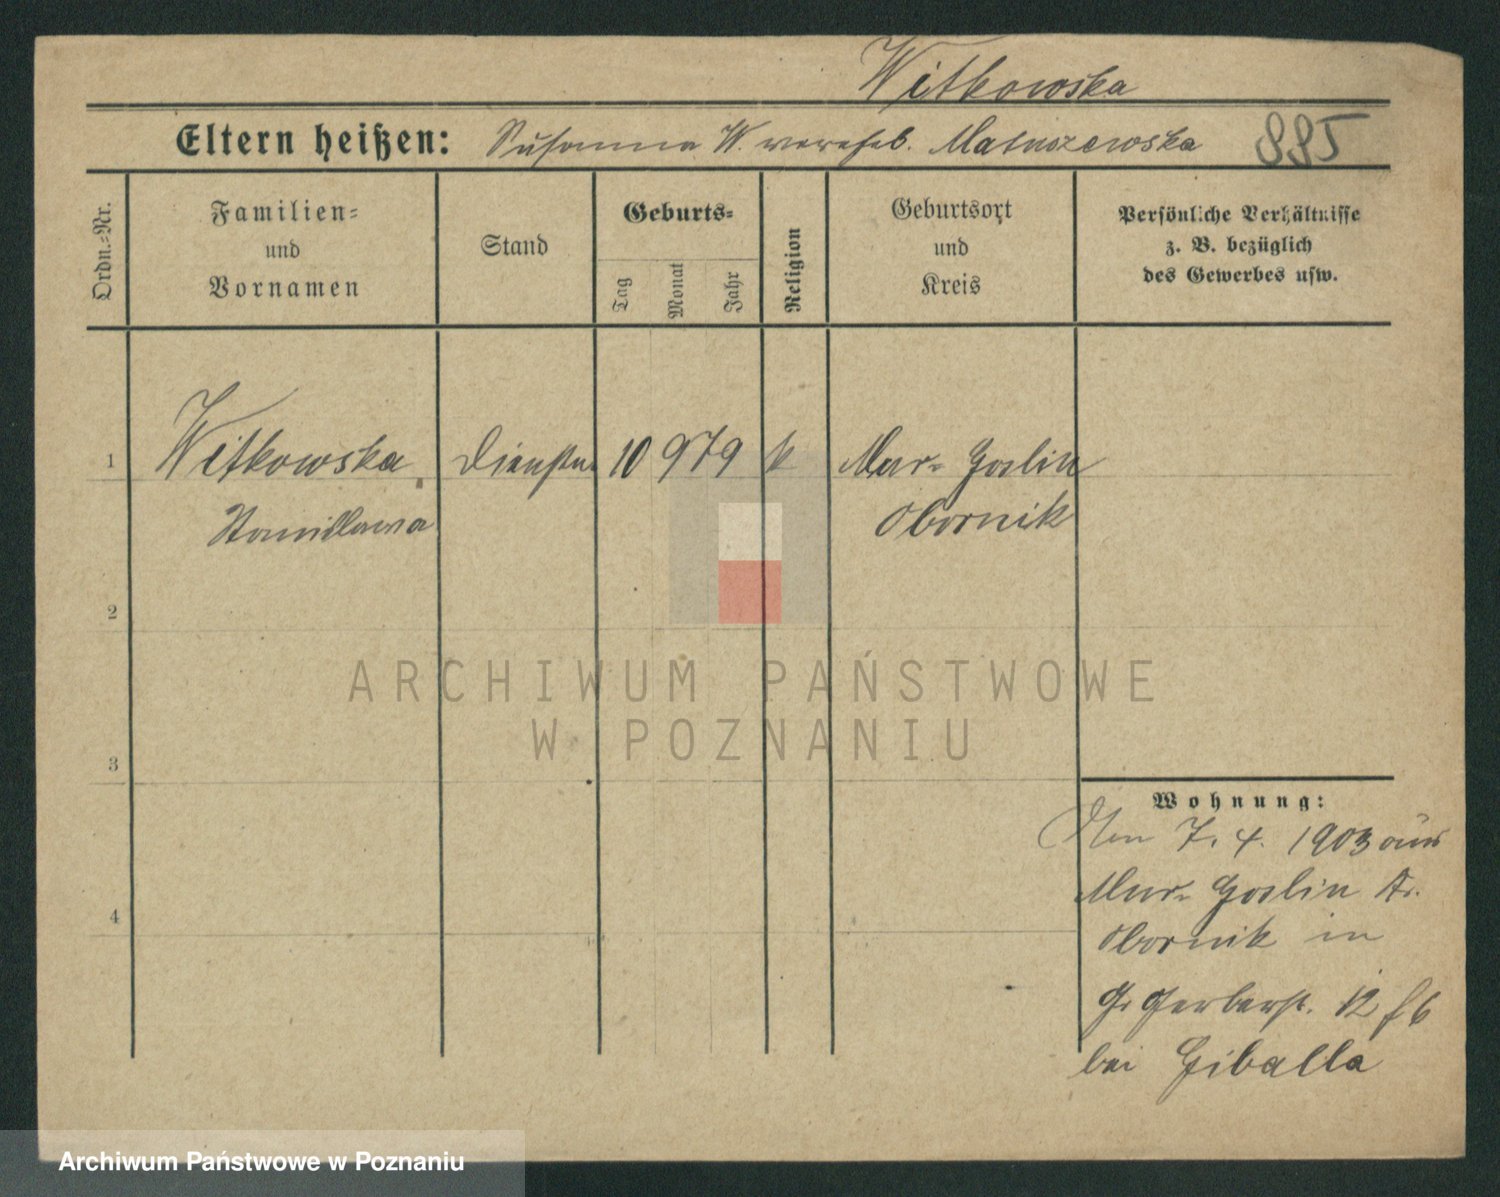 Witkowska
Eltern heißen: Susanna W. verehel. Matuszewska
Ordn.-Nr.
Familien-
und
Vornamen
Stand
Geburts-
Tag
Monat
Jahr
Religion
Geburtsort
und
Kreis
Persönliche Verhältnisse
z. B. bezüglich
des Gewerbes usw.
1 Witkowska Dienstm. 10 9 79 k Mur- Goslin
Stanislawa Obornik
2
ARCHIWUM PAŃSTWOWE
W POZNANIU
3
Wohnung:
Den 7. 4. 1903 aus
Mur- Goslin Kr.
4
Obornik in
Gr Gerberst. 12
bei Giballa
Archiwum Państwowe w Poznaniu